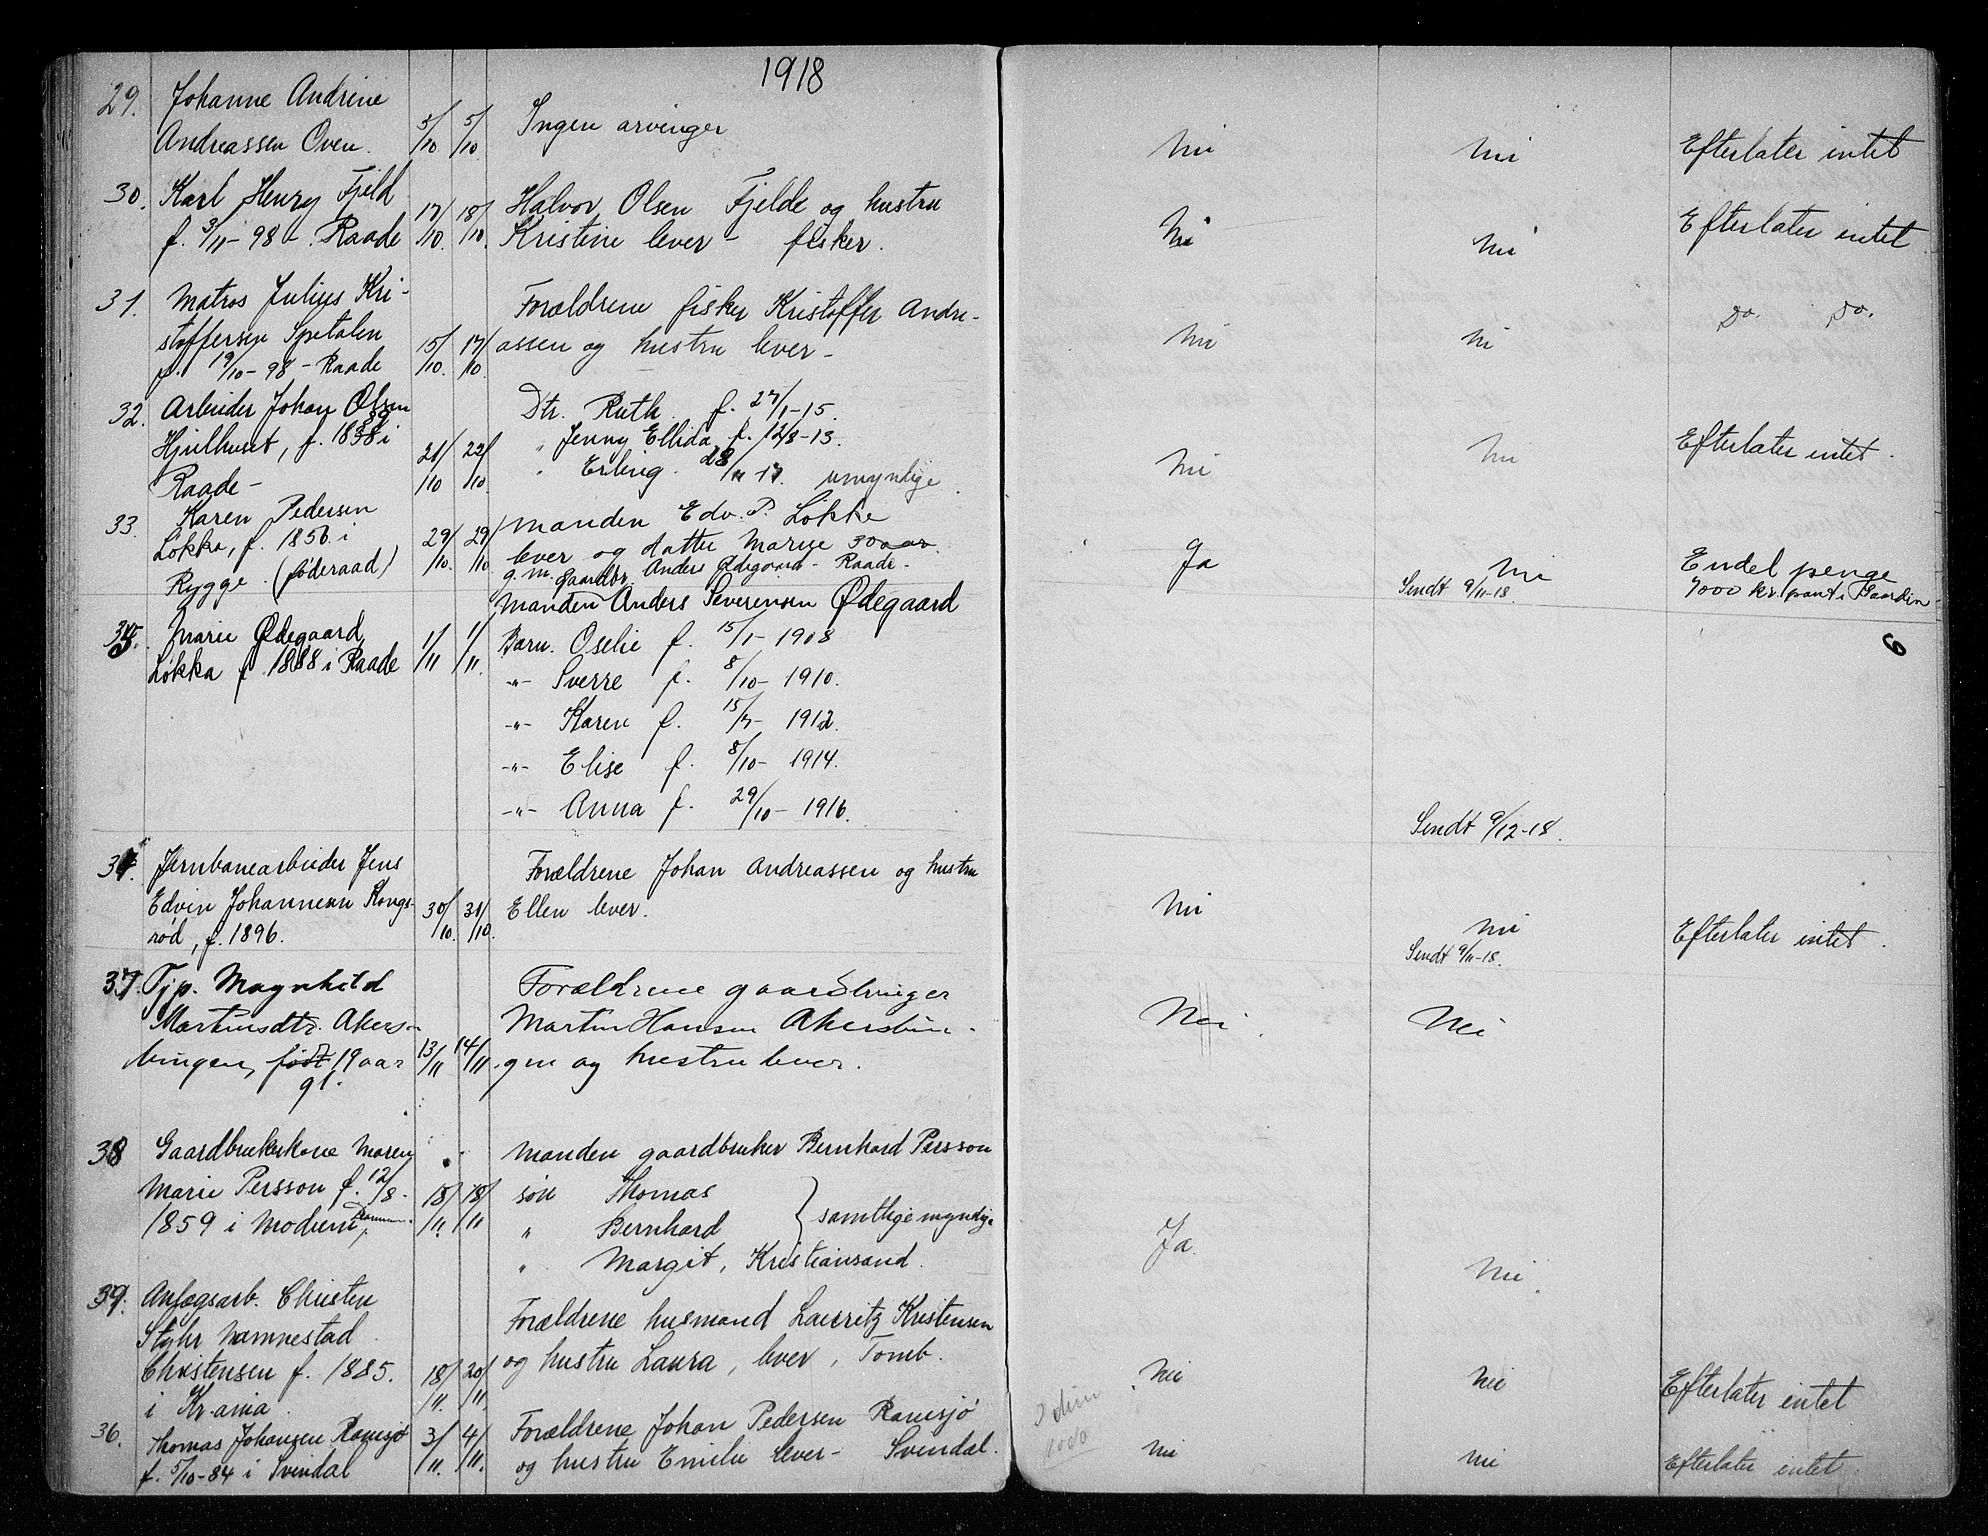 1918
29. Johanne Andrine
Andreassen Oven. 5/10 5/10. Ingen arvinger Nei Nei Efterlater intet
30. Karl Henry Fjeld 17/10. 18/10. Halvor Olsen Fjelde og hustru Nei Nei Efterlater intet
f. 3/11-98 - Raade Kristine lever - fisker.
31. Matros Julius Kri-
stoffersen Spetalen
f. 19/10-98 - Raade 15/10. 17/10. Forældrene fisker Kristoffer Andre-
assen og hustru lever - Nei Nei Do. Do.
32. Arbeider Johan Olsen
Hjulhuset, f. 1888 i
Raade - 21/10 22/10. Dtr. Ruth. f. 27/1-15.
" Jenny Ellida f. 12/8-13.
" Erling. umyndige Nei Nei Efterlater intet.
33. Karen Pedersen
Løkka, f. 1856 i
Rygge. (føderaad) 29/10. 29/10. Manden Edv. P. Løkke
lever og datter Marie 30 aar.
g. m. gaardbr. Anders Ødegaard - Raade - Ja Nei
Sendt 9/11-18. Endel penge
7000 kr. pant i Gaarden
35. Marie Ødegaard
Løkka f 1888 i Raade 1/11 1/11. Manden Anders Severensen Ødegaard
Barn. Oselie f. 15/1-1908
-"- Sverre f. 8/10-1910.
-"- Karen f. 15/7-1912.
-"- Elise f. 8/10-1914.
-"- Anna f. 29/10-1916. Sendt 9/12-18.
6
34. Jernbanearbeider Jens
Edvin Johannesen Kongs-
rød, f. 1896. 30/10. 31/10. Forældrene Johan Andreassen og hustru
Ellen lever. Nei Nei
Sendt 9/11-18. Efterlater intet.
37. Tjp. Magnhild
Martinsdtr. Akers-
bingen, født 19 aar
gl. 13/11 14/11. Forældrene gaardbruger
Martin Hansen Akersbin-
gen og hustru lever. Nei. Nei
38 Gaardbrukerkone Maren
Marie Persson f. 12/8-
1859 i Modum, 18/11. 18/11 Manden gaardbruker Bernhard Persson
søn Thomas
" Bernhard samtlige myndige
" Margit, Kristiansand. Ja. Nei
39. Anlægsarb. Christen
Styhr Namnestad
Christensen f. 1885.
i Kr.ania. 18/11. 20/11. Forældrene husmand Lauritz Kristensen
og hustru Laura, lever, Tomb. Nei Nei Efterlater intet
36. Thomas Johansen Ramsjø
f. 5/10-84 i Svendal 3/11. 4/11. Forældrene Johan Pedersen Ramsjø
og hustru Emilie lever - Svendal. Nei Nei Efterlater intet.